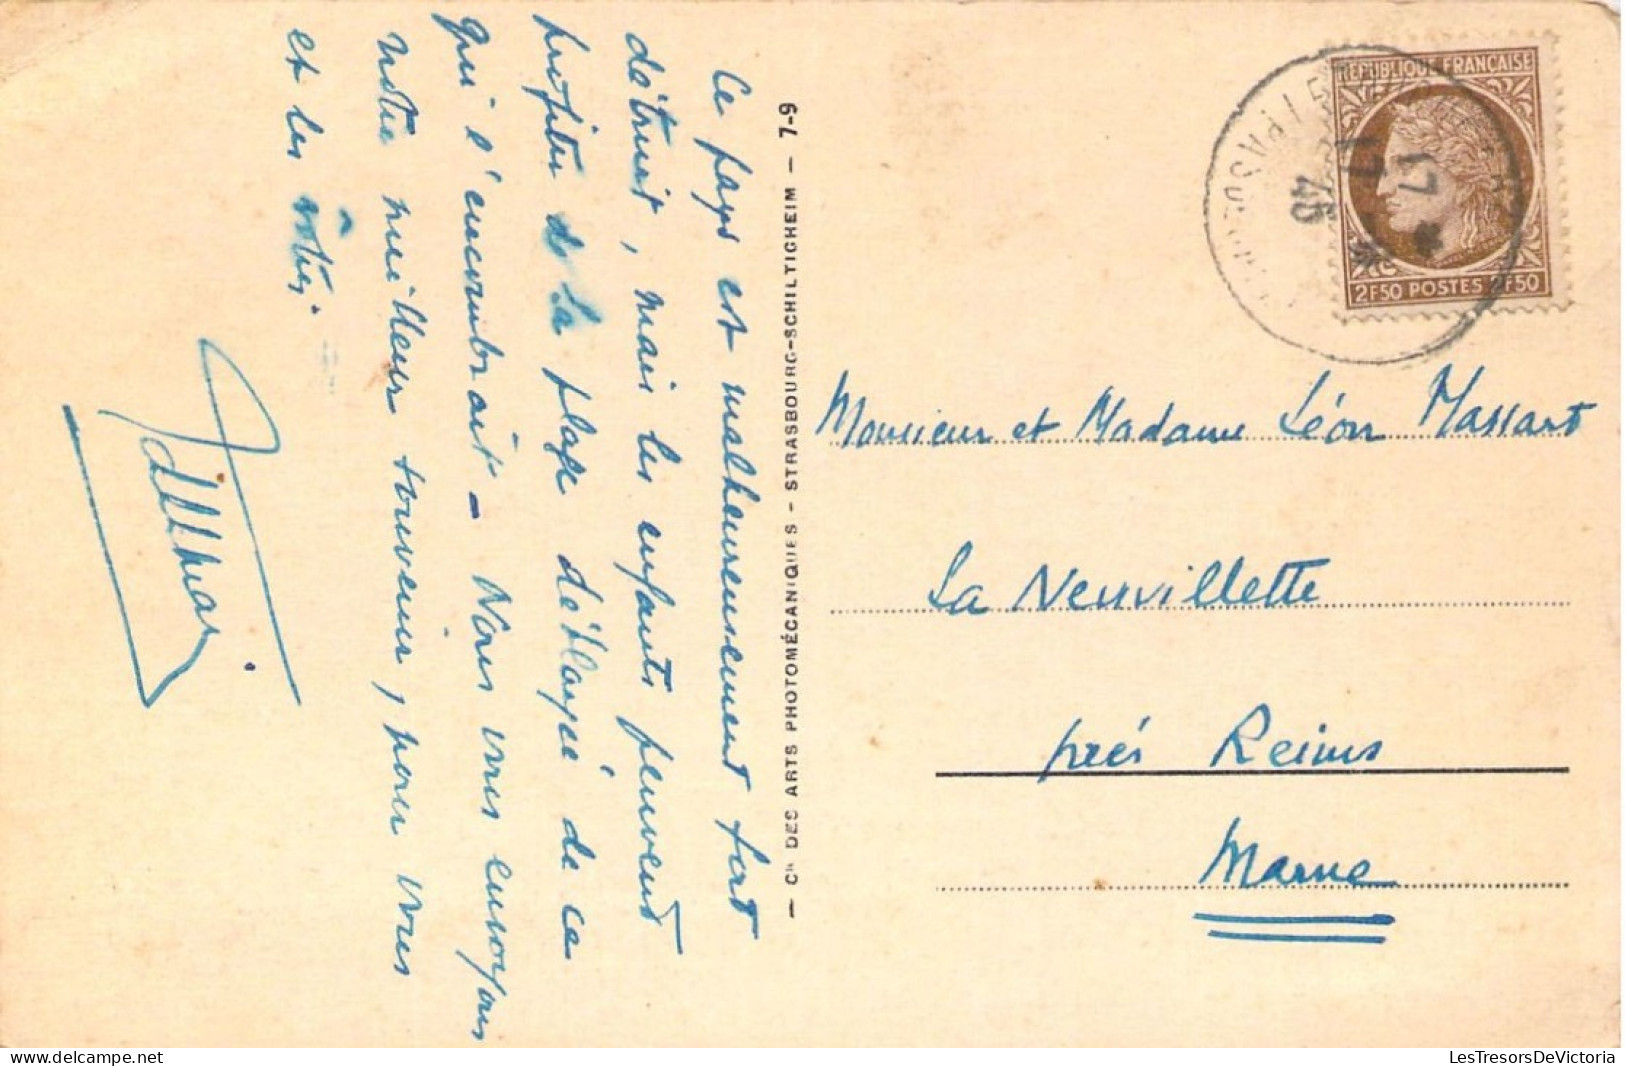 Ce pays est malheureusement fort
détruit, mais les enfants peuvent
profiter de la plage déblayée de ce
qui l'encombrait - Nous vous envoyons
notre meilleur souvenir, pour vous
et les vôtres.
— Cie DES ARTS PHOTOMÉCANIQUES - STRASBOURG-SCHILTIGHEIM — 7-9
RÉPUBLIQUE FRANÇAISE
2F50 POSTES 2F50
17
* 17 *
46
Monsieur et Madame Léon Massart
La Neuvillette
près Reims
Marne
LesTresorsDeVictoria
https://www.delcampe.net